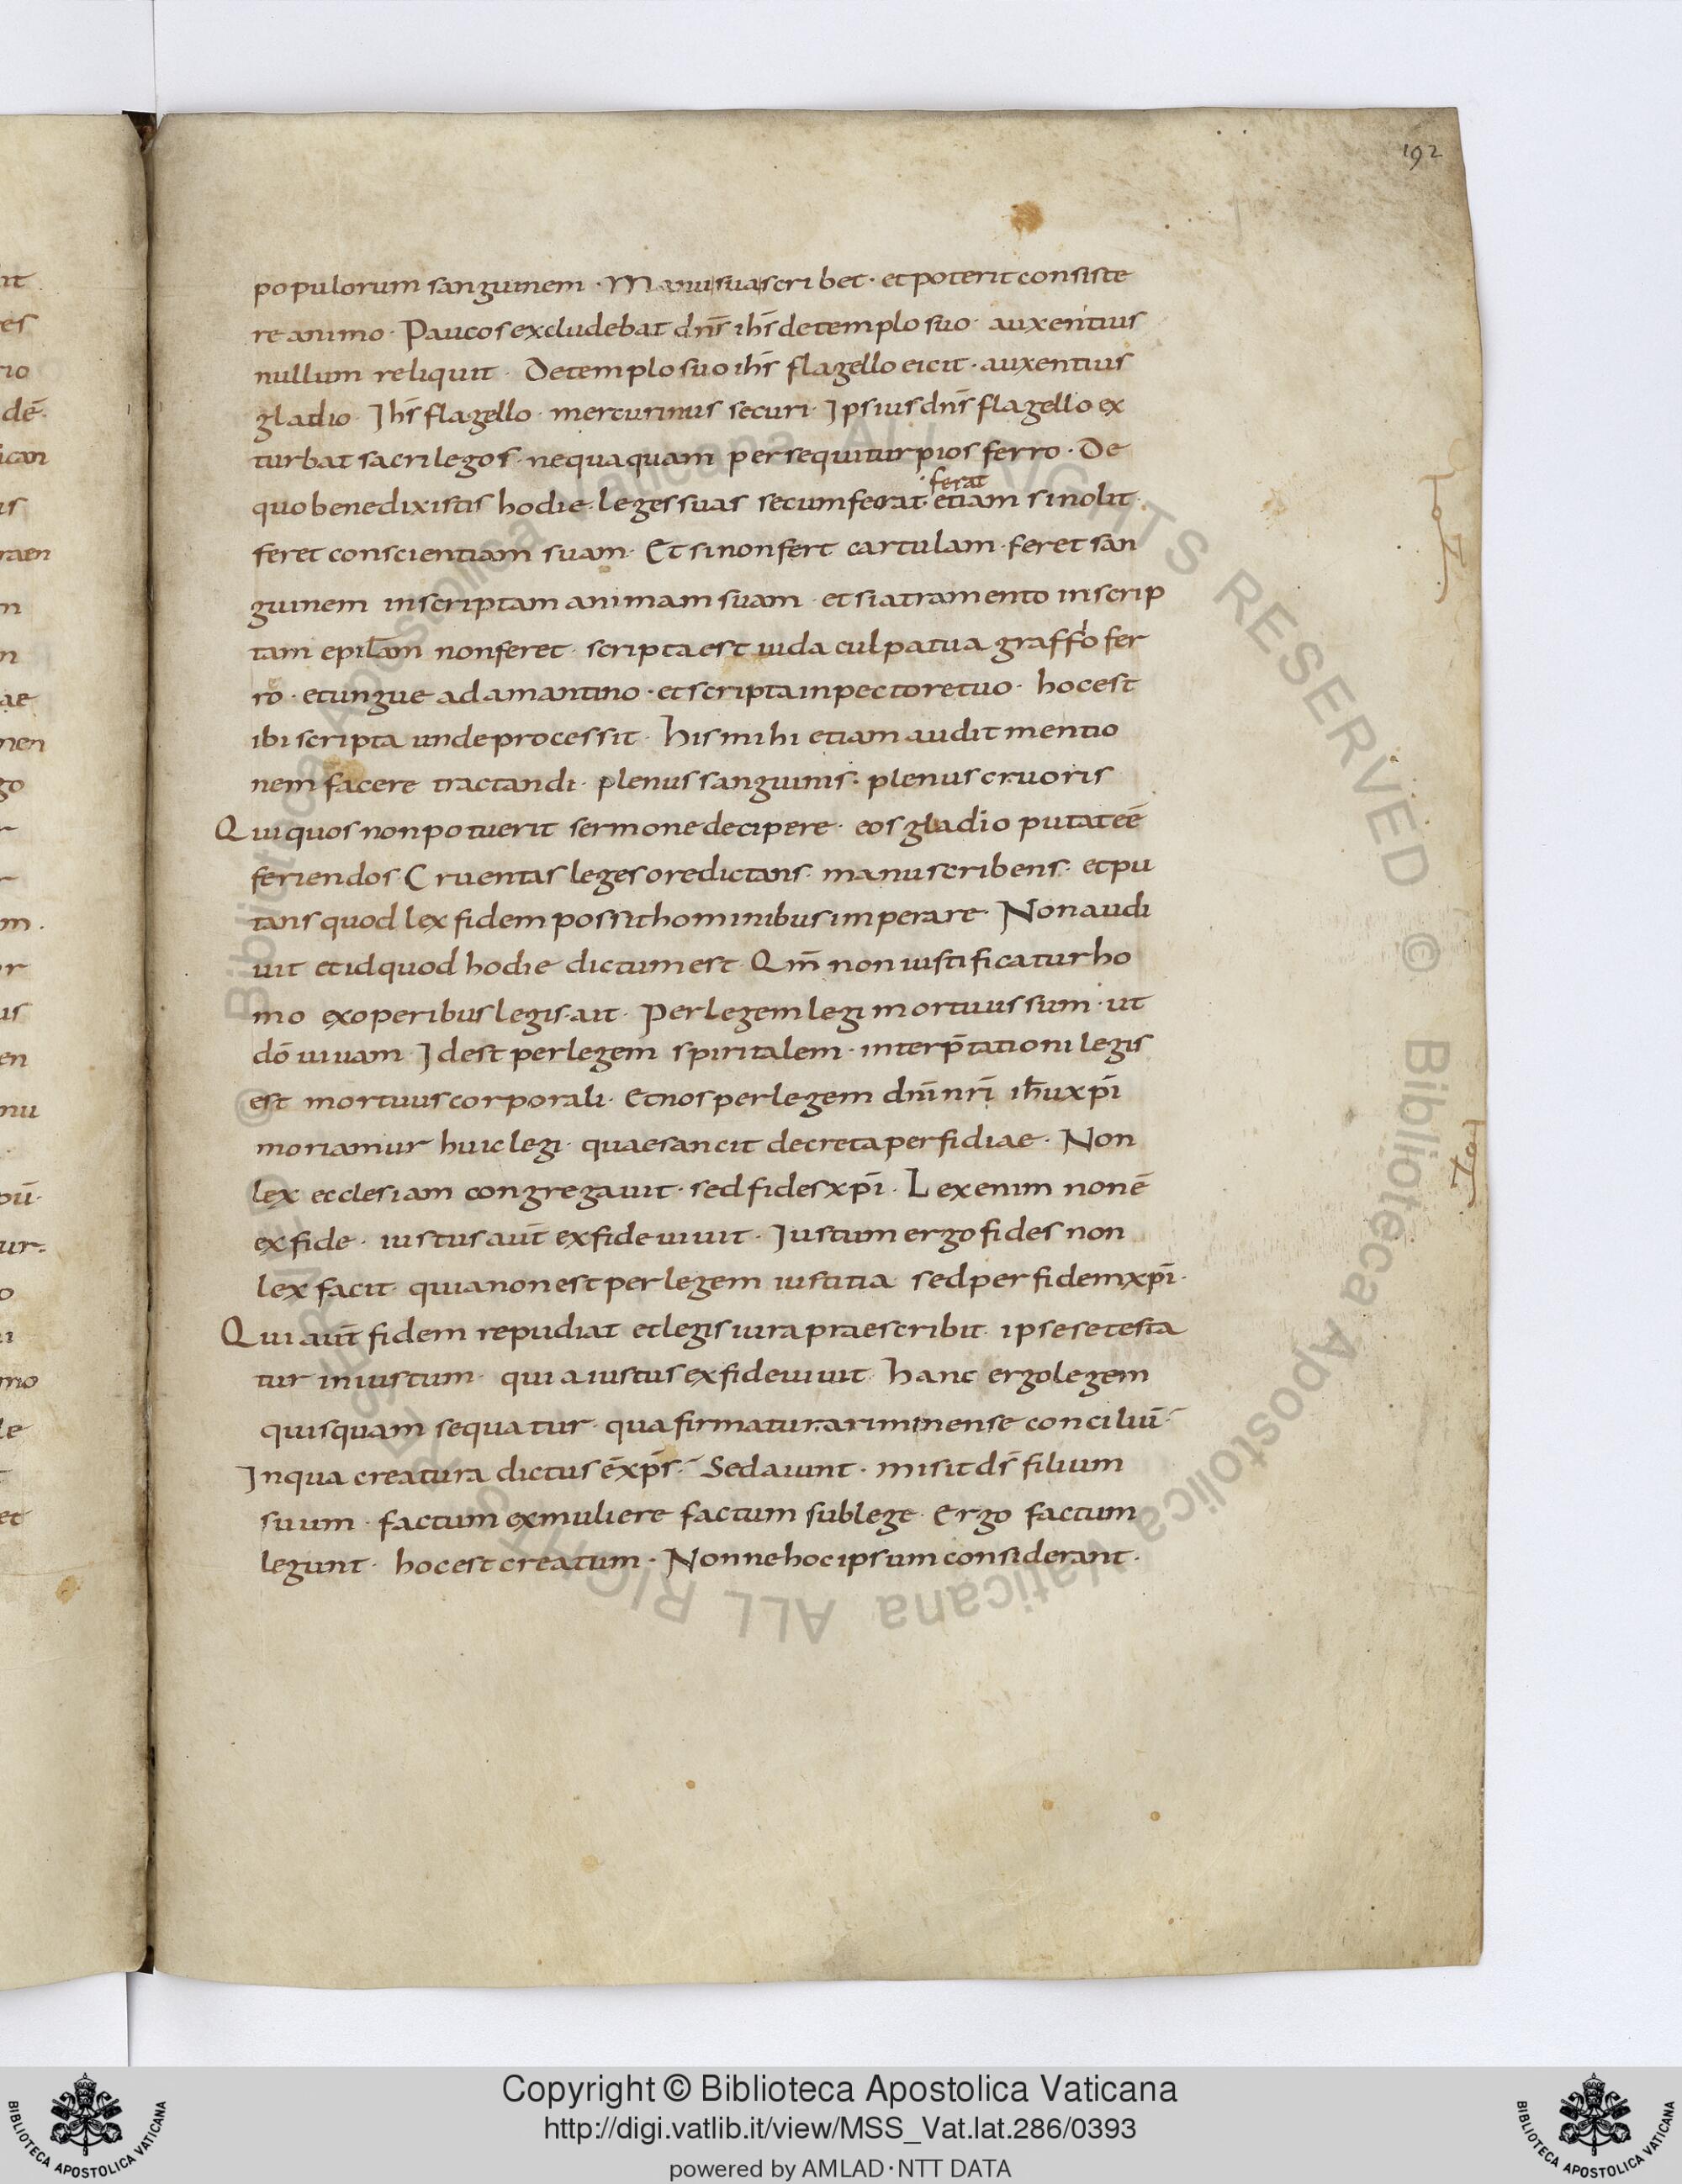 192
populorum sanguinem · Manu sua scribet · et poterit consiste
re animo · Paucos excludebat dns̄ ihs̄ de templo suo · auxentius
nullum reliquit · De templo suo ihs̄ flagello eicit · auxentius
gladio · Ihs̄ flagello · mercurinus securi · Ipsius dns̄ flagello ex
turbat sacrilegos · nequaquam persequitur pios ferro · De
ferat
quo bene dixistis hodie · leges suas secum feorat · etiam si nolit ·
feret conscientiam suam · Et si non fert cartulam · feret san
guinem inscriptam animam suam · et si atramento inscrip
tam epil̄am non feret · scripta est iuda culpa tua graffio fer
ro · et ungue adamantino · et scripta in pectore tuo · hoc est
ibi scripta unde processit · his mihi etiam audit mentio
nem facere tractandi · plenus sanguinis · plenus cruoris
Qui quos non potuerit sermone decipere · eos gladio putat eē
feriendos Cruentas leges ore dictans · manu scribens · et pu
tans quod lex fidem possit hominibus imperare · Non audi
uit et id quod hodie dictum est · Qm̄ non iustificatur ho
mo ex operibus legis · ait · Per legem legi mortuus sum · ut
dō uiuam · Id est per legem spiritalem · interp̄tationi legis
est mortuus corporali · Et nos per legem dnī nrī ihū xpī
moriamur huic legi · quae sancit decreta perfidiae · Non
lex ecclesiam congregauit · sed fides xpī · Lex enim non ē
ex fide · iustus aut̄ ex fide uiuit · Iustum ergo fides non
lex facit · quia non est per legem iustitia sed per fidem xpī ·
Qui aut̄ fidem repudiat et legis iura praescribit · ipse se testa
tur iniustum · quia iustus ex fide uiuit · hanc ergo legem
quisquam sequatur · qua firmatur ariminense conciliū ·
In qua creatura dictus ē xps̄ · Sed aiunt · misit ds̄ filium
suum · factum ex muliere factum sub lege · Ergo factum
legunt · hoc est creatum · Nonne hoc ipsum considerant ·
© Biblioteca Apostolica Vaticana ALL RIGHTS RESERVED © Biblioteca Apostolica Vaticana ALL RIGHTS RESERVED
Copyright © Biblioteca Apostolica Vaticana
http://digi.vatlib.it/view/MSS_Vat.lat.286/0393
powered by AMLAD·NTT DATA
BIBLIOTECA APOSTOLICA VATICANA
BIBLIOTECA APOSTOLICA VATICANA